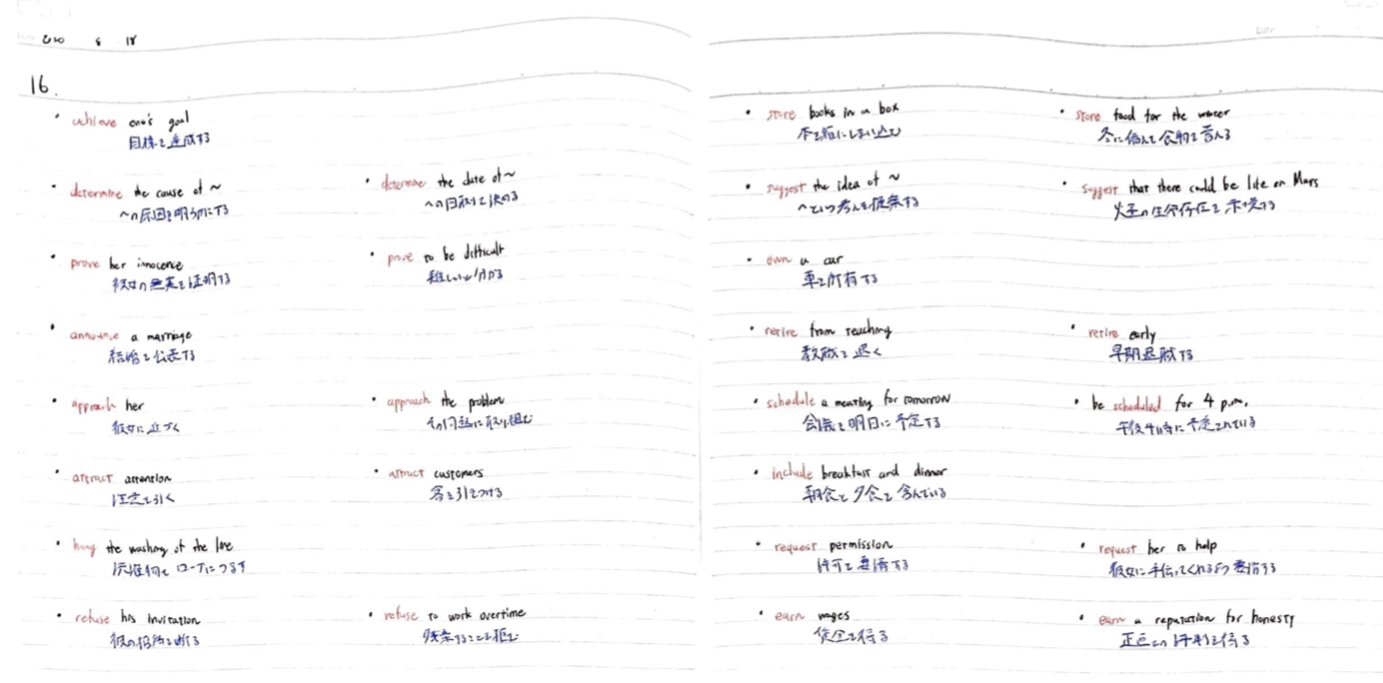 8 18
16.
• achieve one's goal
目標を達成する
• determine the cause of ~
~の原因を明らかにする
• determine the date of ~
~の日取りを決める
• prove her innocence
彼女の無実を証明する
• prove to be difficult
難しいと分かる
• announce a marriage
結婚を公表する
• approach her
彼女に近づく
• approach the problem
その問題に取り組む
• attract attention
注意を引く
• attract customers
客を引きつける
• hang the washing of the line
洗濯物をロープにつるす
• refuse his invitation
彼の招待を断る
• refuse to work overtime
残業することを拒む
• store books in a box
本を箱にしまい込む
• store food for the winter
冬に備えて食物を蓄える
• suggest the idea of ~
~という考えを提案する
• suggest that there could be life on Mars
火星の生命存在を示唆する
• own a car
車を所有する
• retire from teaching
教職を退く
• retire early
早期退職する
• schedule a meeting for tomorrow
会議を明日に予定する
• be scheduled for 4 p.m.
午後4時に予定されている
• include breakfast and dinner
朝食と夕食を含んでいる
• request permission
許可を要請する
• request her to help
彼女に手伝ってくれるよう要請する
• earn wages
賃金を得る
• earn a reputation for honesty
正直との評判を得る